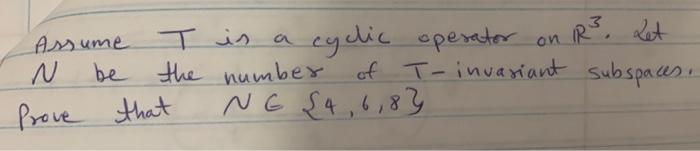 Assume T is a cyclic operator on ℝ³. Let
N be the number of T-invariant subspaces.
Prove that N ∈ {4, 6, 8}